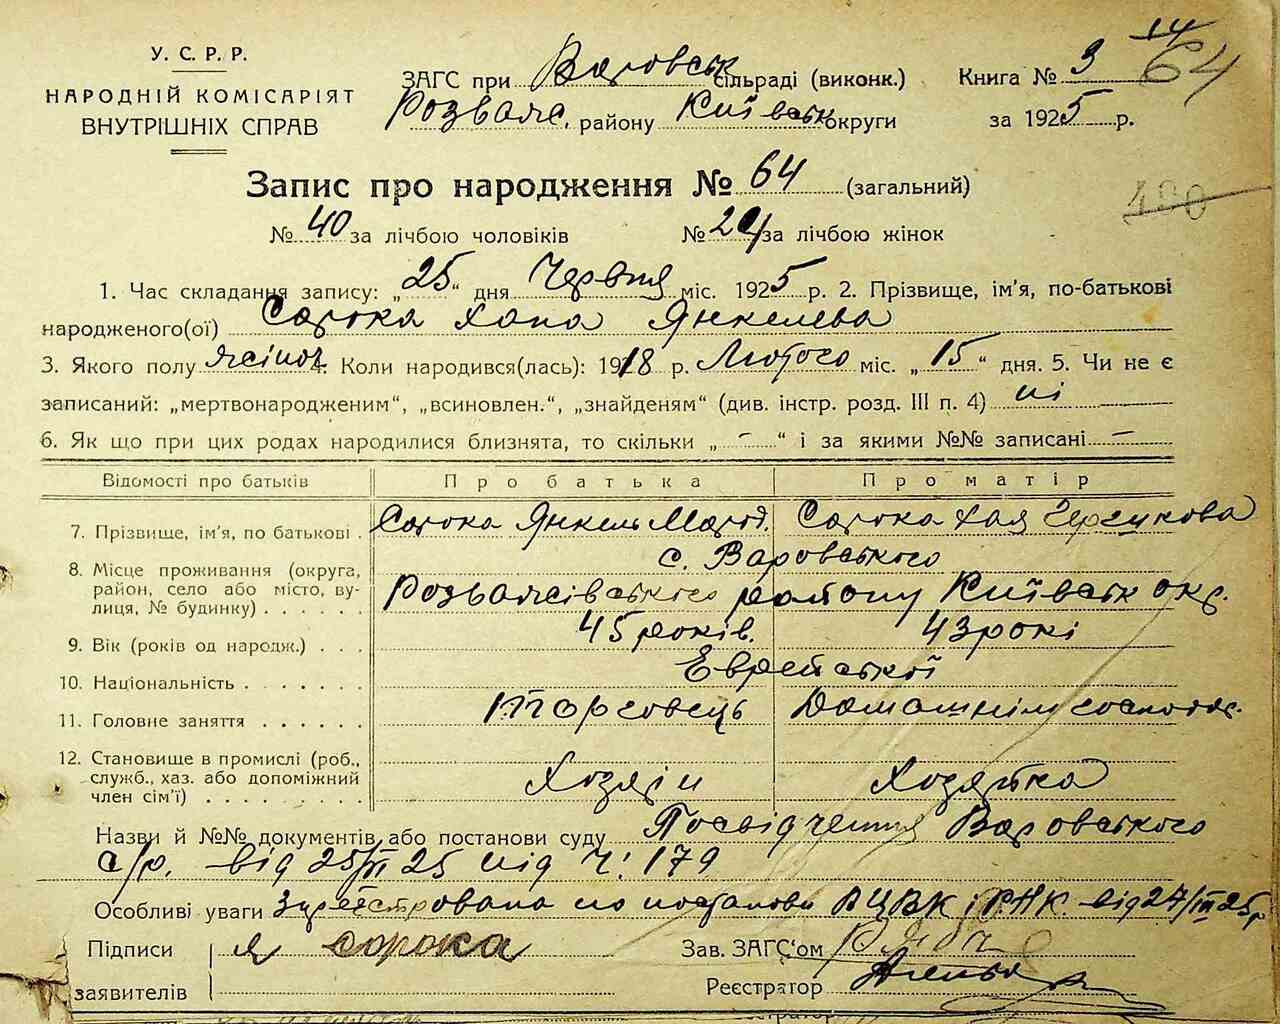 У. С. Р. Р.
НАРОДНІЙ КОМІСАРІЯТ
ВНУТРІШНІХ СПРАВ
ЗАГС при Варовськ сільраді (виконк.)
Розваж. району Київськ округи
Книга № 3
за 1925 р.
14
64
Запис про народження № 64 (загальний)
400
№ 40 за лічбою чоловіків № 24 за лічбою жінок
1. Час складання запису: „25“ дня Червня міс. 1925 р. 2. Прізвище, ім'я, по-батькові
народженого(ої) Сорока Хана Янкелева
3. Якого полу жіноч. 4. Коли народився(лась): 1918 р. Лютого міс. „15“ дня. 5. Чи не є
записаний: „мертвонародженим“, „всиновлен.“, „знайденям“ (див. інстр. розд. III п. 4) ні
6. Як що при цих родах народилися близнята, то скільки „-“ і за якими №№ записані —
Відомості про батьків Про батька Про матір
7. Прізвище, ім'я, по батькові . Сорока Янкель Сорока Хая
8. Місце проживання (округа, район, село або місто, вулиця, № будинку) . . . . . . с. Варовського
Розважівського району Київськ окр.
9. Вік (років од народж.) . . . 45 років. 43 рокі
10. Національність . . . . . . . Еврейської
11. Головне заняття . . . . . . Торговець Домашнім господар.
12. Становище в промислі (роб., служб., хаз. або допоміжний член сім'ї) . . . . . . . . . Хозяін Хозяйка
Назви й №№ документів або постанови суду Посвідчення Варовського
с/р. від 25/VI 25 під ч: 179
Особливі уваги Зареєстрована по постанови ВЦВК і РНК. від 27/III 25р
Підписи заявителів Я Сорока
Зав. ЗАГС'ом
Реєстратор